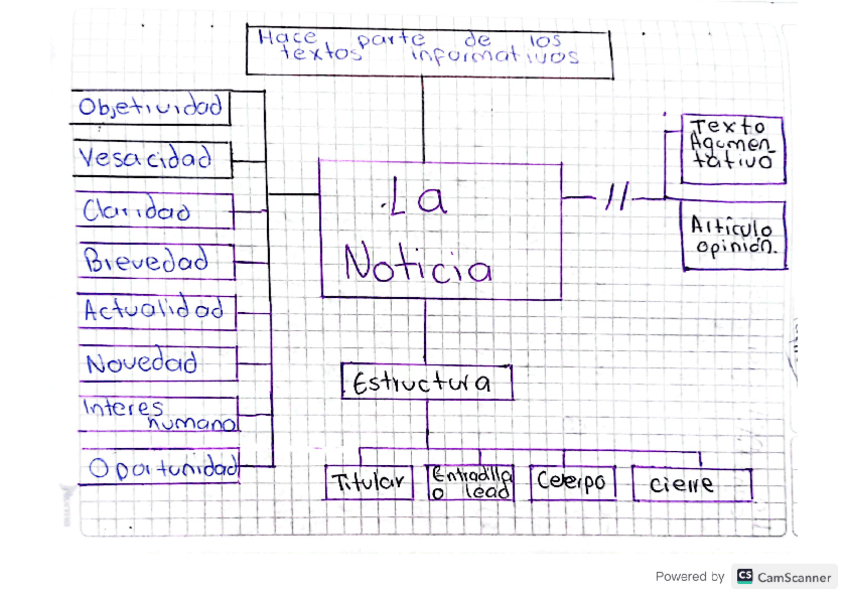 Hace parte de los
textos informativos
Objetividad
Vesacidad
Claridad
Brevedad
Actualidad
Novedad
Interes
humano
Oportunidad
.La
Noticia
//
Texto
Agumen_
tativo
Artículo
opinión.
Estructura
Titular
Entradilla
o lead
Cuerpo
cierre
Powered by CS CamScanner